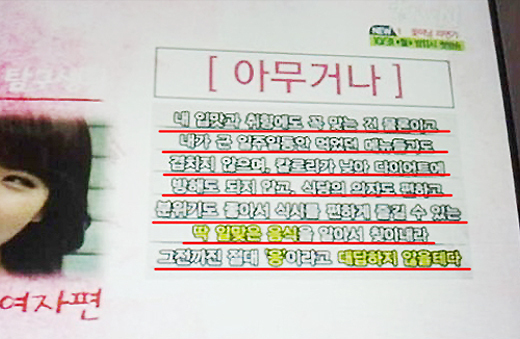 NEW
탐구생
[ 아무거나 ]
내 입맛과 취향에도 꼭 맞는 건 물론이고
내가 근 일주일동안 먹었던 메뉴들과도
겹치지 않으며, 칼로리가 낮아 다이어트에
방해도 되지 않고, 식당의 의자도 편하고
분위기도 좋아서 식사를 편하게 즐길 수 있는
딱 알맞은 음식을 알아서 찾아내라
그전까진 절대 '응'이라고 대답하지 않을테다
여자편